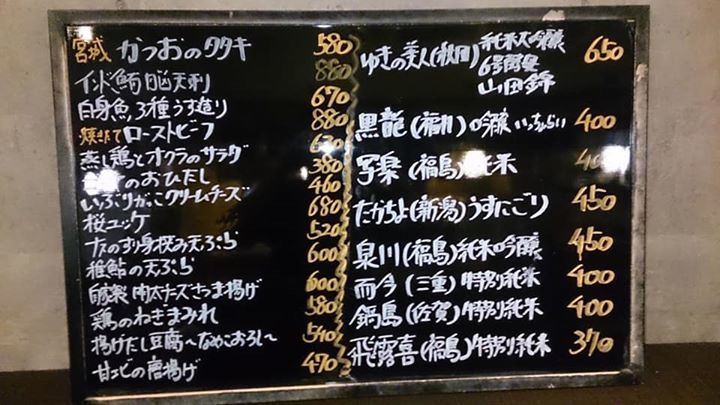 宮城 かつおのタタキ 580
インド鮪脳天刺 880
白身魚3種うす造り 670
焼きたて ローストビーフ 880
蒸し鶏とオクラのサラダ 620
のおひたし 380
いぶりがっこクリームチーズ 460
桜ユッケ 680
ナスのすり身挟み天ぷら 520
稚鮎の天ぷら 600
自家製 肉太チーズさつま揚げ 600
鶏のねぎまみれ 580
揚げだし豆腐〜なめこおろし〜 540
甘エビの唐揚げ 470
ゆきの美人(秋田)純米大吟醸 650
6号酵母
山田錦
黒龍(福井)吟醸 いっちょらい 400
写楽(福島)純米
たかちよ(新潟)うすにごり 450
泉川(福島)純米吟醸 450
而今(三重)特別純米 400
鍋島(佐賀)特別純米 400
飛露喜(福島)特別純米 370